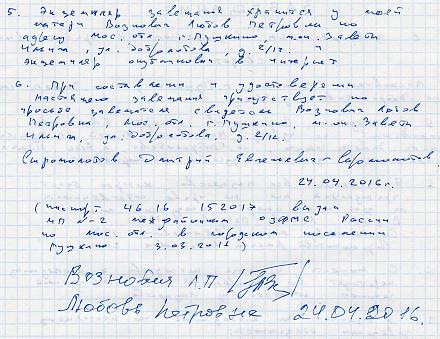 5. Экземпляр завещания хранится у моей
матери Вознобия Любовь Петровны по
адресу мос. отл., г. Пушкино, м-он. Заветы
Ильича, ул. Добролюбова, д. 2/12. и
экземпляр опубликован в интернет
6. При составлении и удостоверении
настоящего завещания присутствует по
просьбе завещателя свидетель Вознобия Любовь
Петровна, мос. отл. г. Пушкино, м-он. Заветы
Ильича, ул. Добролюбова, д. 2/12.
Сыромолотов Дмитрий Евгеньевич - Сыромолотов
24.04.2016г.
(паспорт 46 16 152017 выдан
МП №-2 межрайонного ОУФМС России
по мос. отл. в городском поселении
Пушкино 3.03.201)
Вознобия Л.П
Любовь Петровна 24.04.2016.